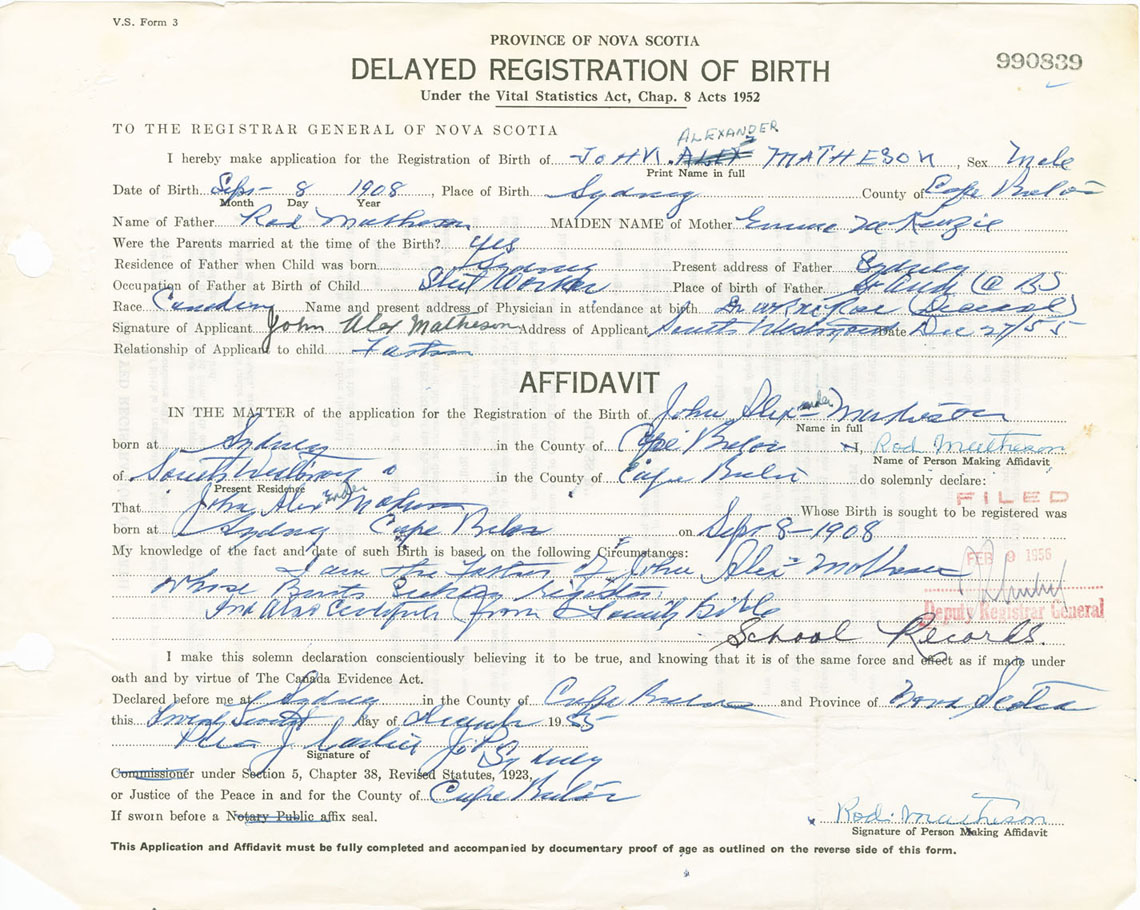 V.S. Form 3
PROVINCE OF NOVA SCOTIA
990839
DELAYED REGISTRATION OF BIRTH
Under the Vital Statistics Act, Chap. 8 Acts 1952
TO THE REGISTRAR GENERAL OF NOVA SCOTIA
ALEXANDER
I hereby make application for the Registration of Birth of JOHN ALEX MATHESON, Sex Male
Print Name in full
Date of Birth Sept 8 1908, Place of Birth Sydney County of Cape Breton
Month Day Year
Name of Father Rod Matheson MAIDEN NAME of Mother Emma McKenzie
Were the Parents married at the time of the Birth? Yes
Residence of Father when Child was born Sydney Present address of Father Sydney
Occupation of Father at Birth of Child Steel Worker Place of birth of Father
Race Name and present address of Physician in attendance at birth
Signature of Applicant John Alex Matheson Address of Applicant South Date Dec 27/55
Relationship of Applicant to child
AFFIDAVIT
IN THE MATTER of the application for the Registration of the Birth of John Alexander Matheson
Name in full
born at Sydney in the County of Cape Breton I, Rod Matheson
Name of Person Making Affidavit
of South in the County of Cape Breton do solemnly declare:
Present Residence
FILED
That John Alexander Matheson Whose Birth is sought to be registered was
born at Sydney Cape Breton on Sept 8-1908
My knowledge of the fact and date of such Birth is based on the following Circumstances:
FEB 9 1956
I am the of John Alex Matheson
Whose
from Family Bible
Deputy Registrar General
School Records.
I make this solemn declaration conscientiously believing it to be true, and knowing that it is of the same force and effect as if made under
oath and by virtue of The Canada Evidence Act.
Declared before me at Sydney in the County of Cape Breton and Province of Nova Scotia
this day of December 1955
J. P. Sydney
Signature of
Commissioner under Section 5, Chapter 38, Revised Statutes, 1923,
or Justice of the Peace in and for the County of Cape Breton
If sworn before a Notary Public affix seal.
Rod. Matheson
Signature of Person Making Affidavit
This Application and Affidavit must be fully completed and accompanied by documentary proof of age as outlined on the reverse side of this form.